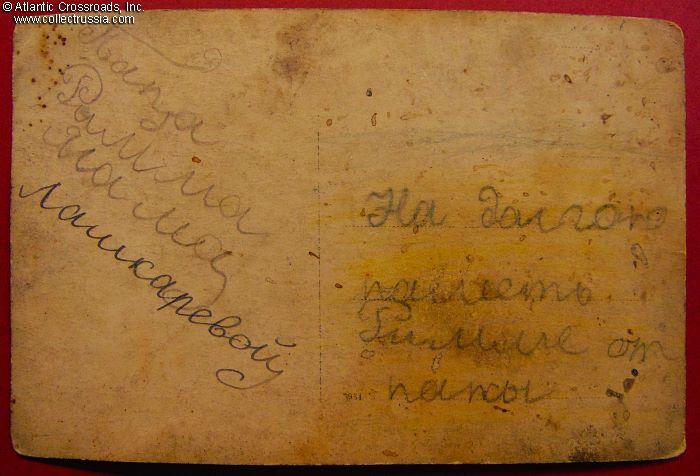 © Atlantic Crossroads, Inc.
www.collectrussia.com
Папа
Римма
Мама
Лашкаревой
На долгою
память
Римме от
папы